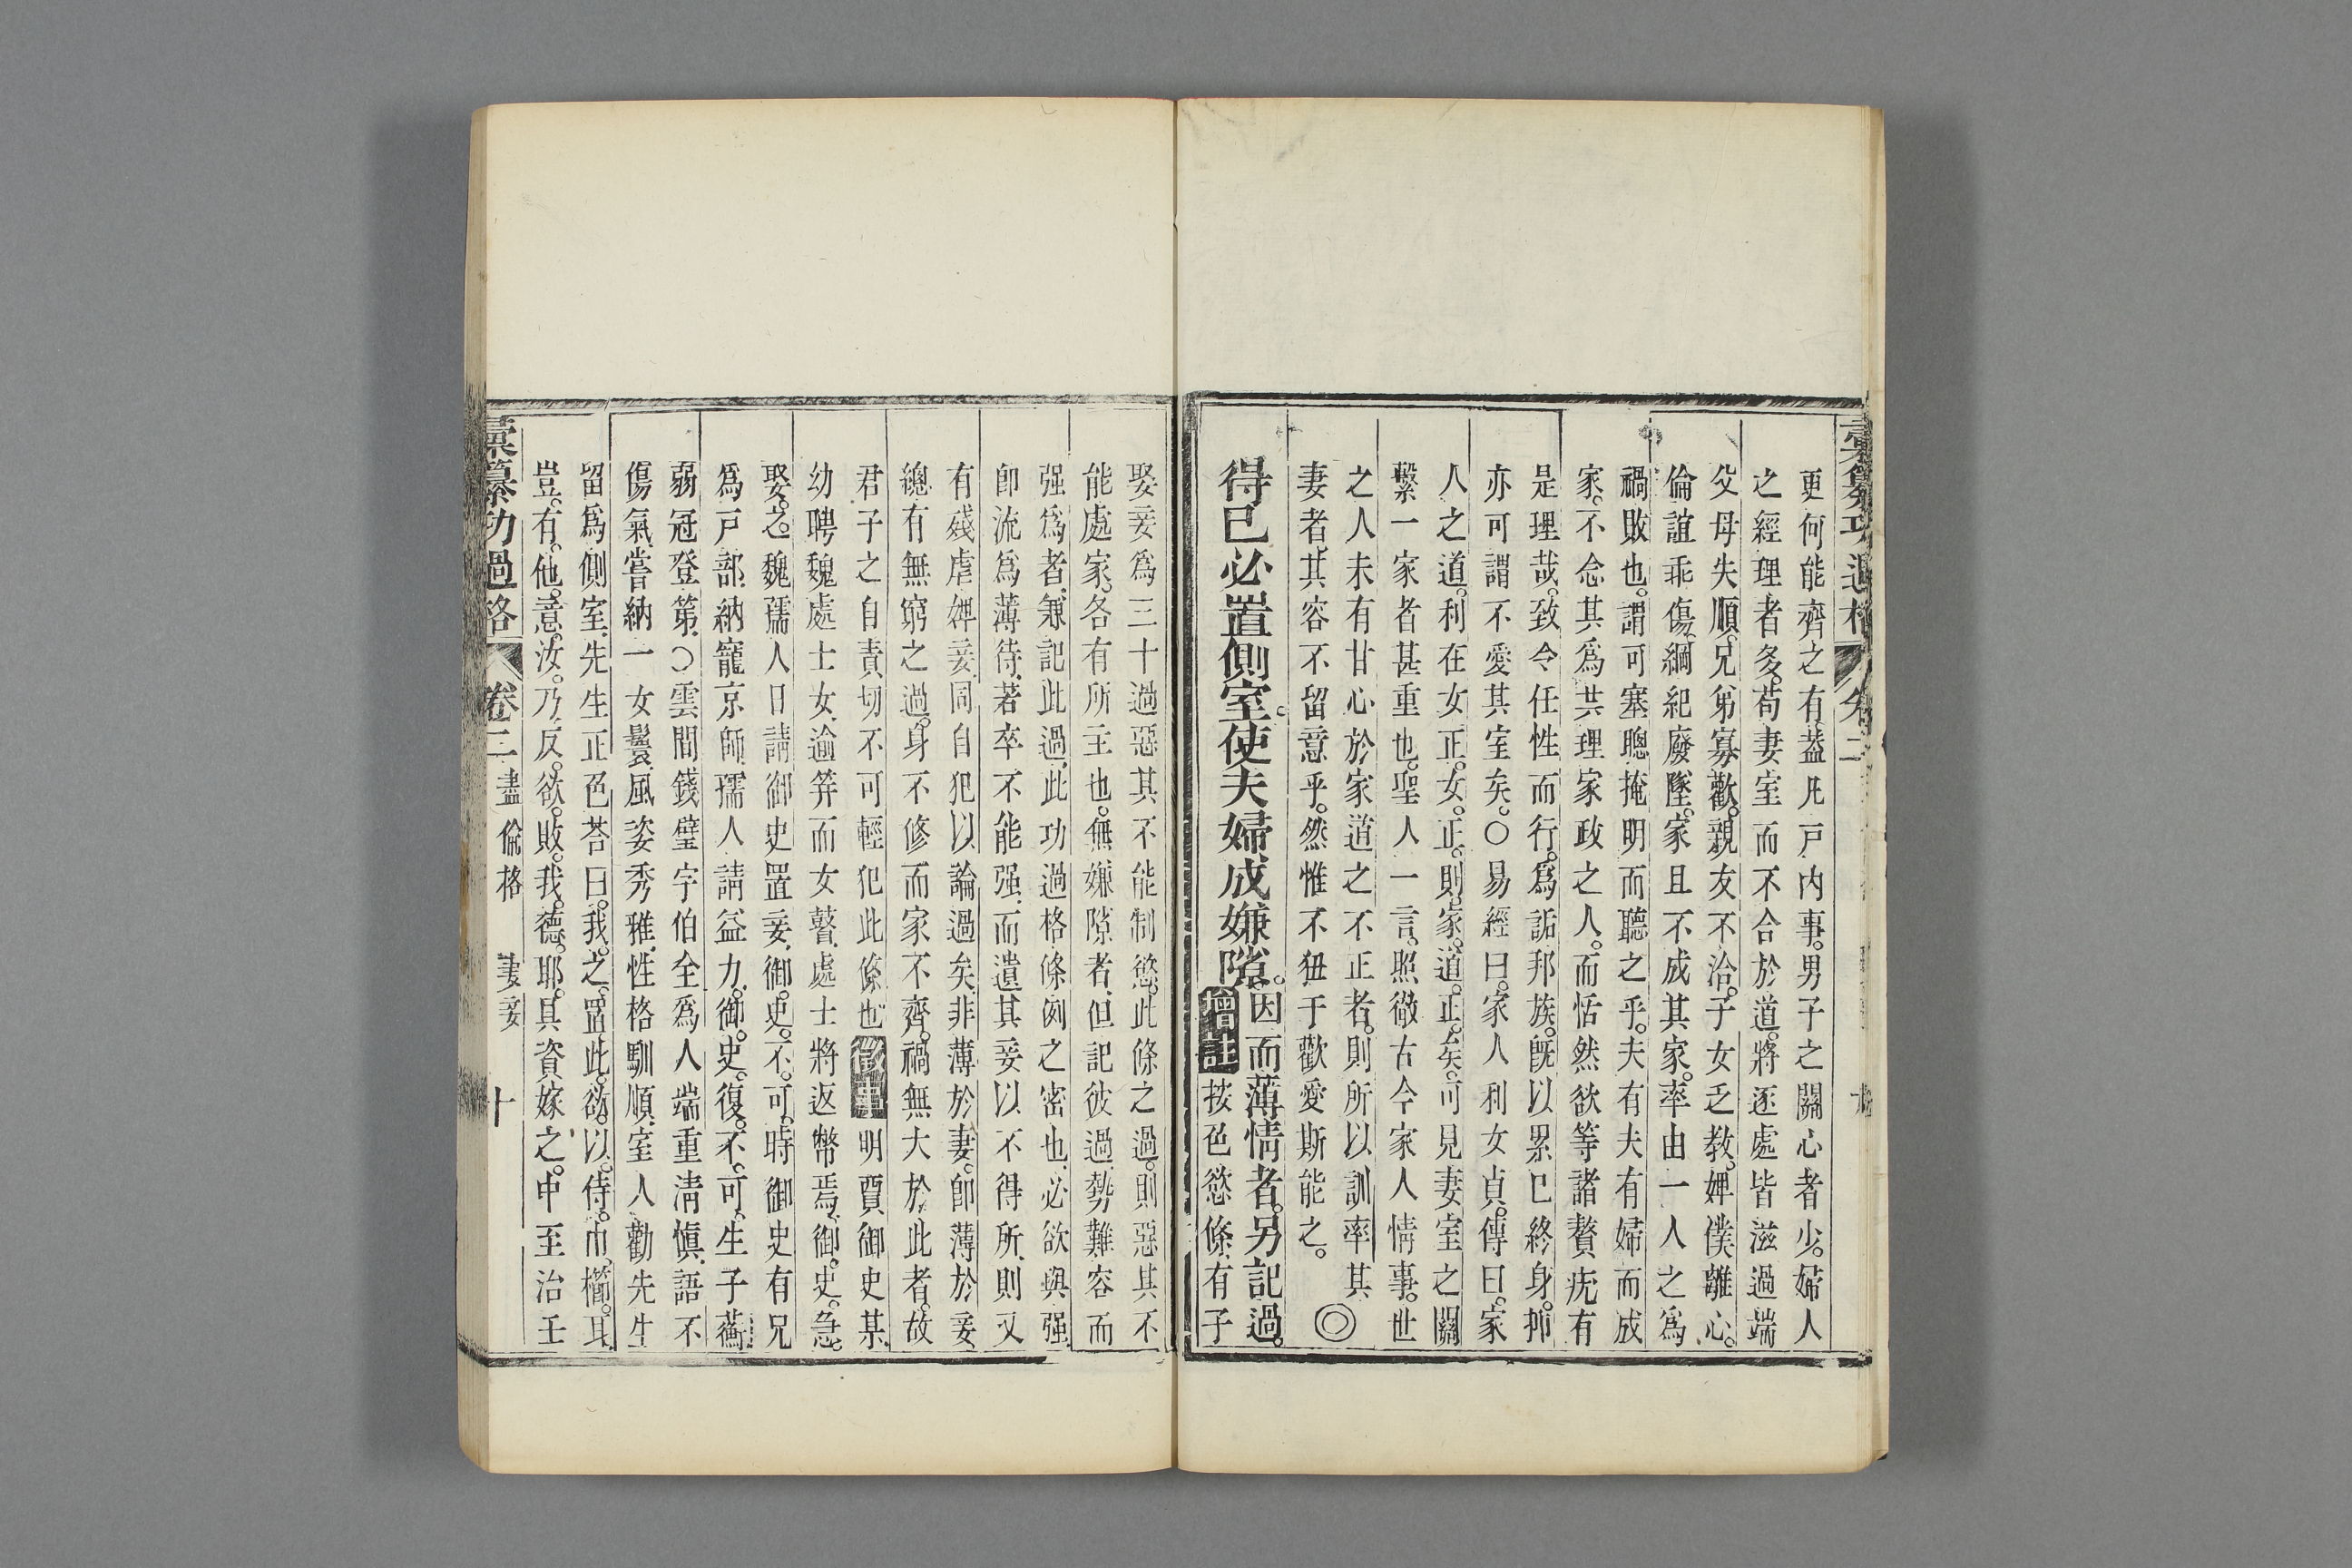 彙纂功過格 卷二
更何能齊之有葢凡戸内事。男子之關心者少。婦人
之經理者多。苟妻室而不合於道。將逐處皆滋過端
父母失順。兄弟寡歡。親友不洽。子女乏教。婢僕離心。
倫誼乖傷。綱紀廢墜。家且不成其家。率由一人之爲
禍敗也。謂可塞聰掩明而聽之乎。夫有夫有婦而成
家。不念其爲共理家政之人。而恬然欲等諸贅疣有
是理哉。致令任性而行。爲詬邦族。旣以累巳終身。抑
亦可謂不愛其室矣。○易經曰。家人利女貞。傳曰。家
人之道。利在女正。女。正。則。家。道。正。矣。可見妻室之關
繫一家者甚重也。聖人一言。照徹古今家人情事。世
之人未有甘心於家道之不正者。則所以訓率其
妻者。其容不留意乎。然惟不狃于歡愛斯能之。 ◎
得已必置側室。使夫婦成嫌隙。因而薄情者。另記過。
增註按色慾條。有子
娶妾爲三十過惡其不能制慾。此條之過。則惡其不
能處家。各有所主也。無嫌隙者。但記彼過。勢難容而
强爲者。兼記此過。此功過格條例之密也。必欲與强。
卽流爲薄待。若卒不能强。而遣其妾以不得所。則又
有殘虐婢妾。同自犯以論過矣。非薄於妻。卽薄於妾
總有無窮之過。身不修而家不齊。禍無大於此者。故
君子之自責。切不可輕犯此條也徵事明賈御史某。
幼聘魏處士女。逾笄而女瞽。處士將返幣焉。御。史。急。
娶。之。魏孺人日請御史置妾。御。史。不。可。時御史有兄
爲戸部。納寵京師。孺人請益力。御。史。復。不。可。生子蕎。
弱冠登第。○雲間錢璧宇伯全爲人端重淸愼。語不
傷氣。嘗納一女鬟。風姿秀雅。性格馴順。室人勸先生
留爲側室。先生正色荅曰。我。之。置。此。欲。以。侍。巾。櫛。耳。
豈。有。他。意。汝。乃。反。欲。敗。我。德。耶。具資嫁之。中至治壬
彙纂功過格 卷二 盡倫格 妻妾 十